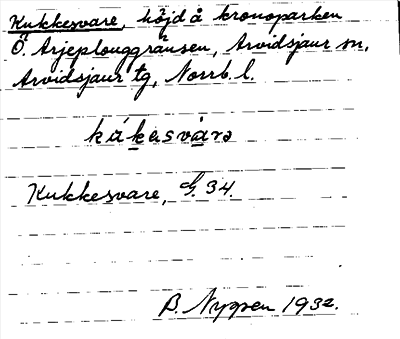 Kukkesvare, höjd å kronoparken
Ö. Arjeplouggränsen, Arvidsjaur sn,
Arvidsjaur tg, Norrb. l.
kákàsvárə
Kukkesvare, G. 34.
B. Nyppen 1932.